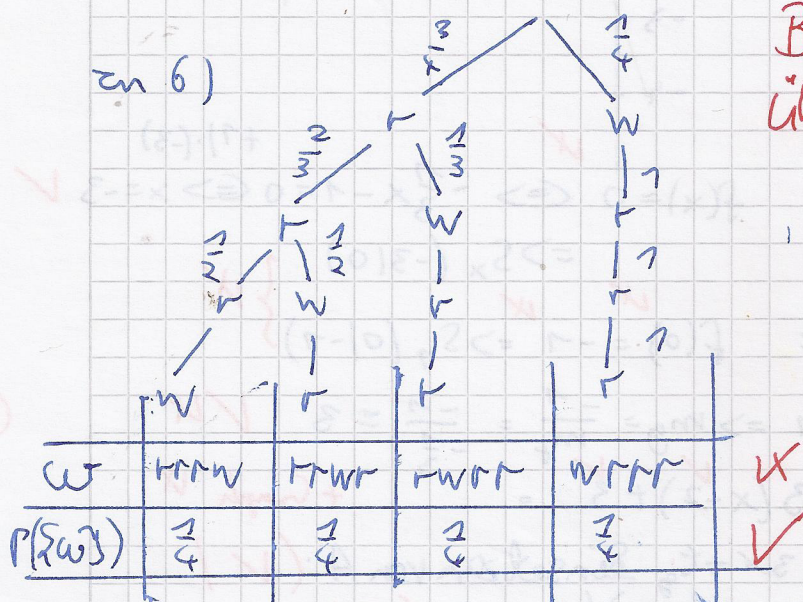 zu 6)
3/4 1/4
r w
2/3 1/3 1
r w r
1/2 1/2 1
r w r r
1
w r r r
ω rrrw rrwr rwrr wrrr
P({ω}) 1/4 1/4 1/4 1/4